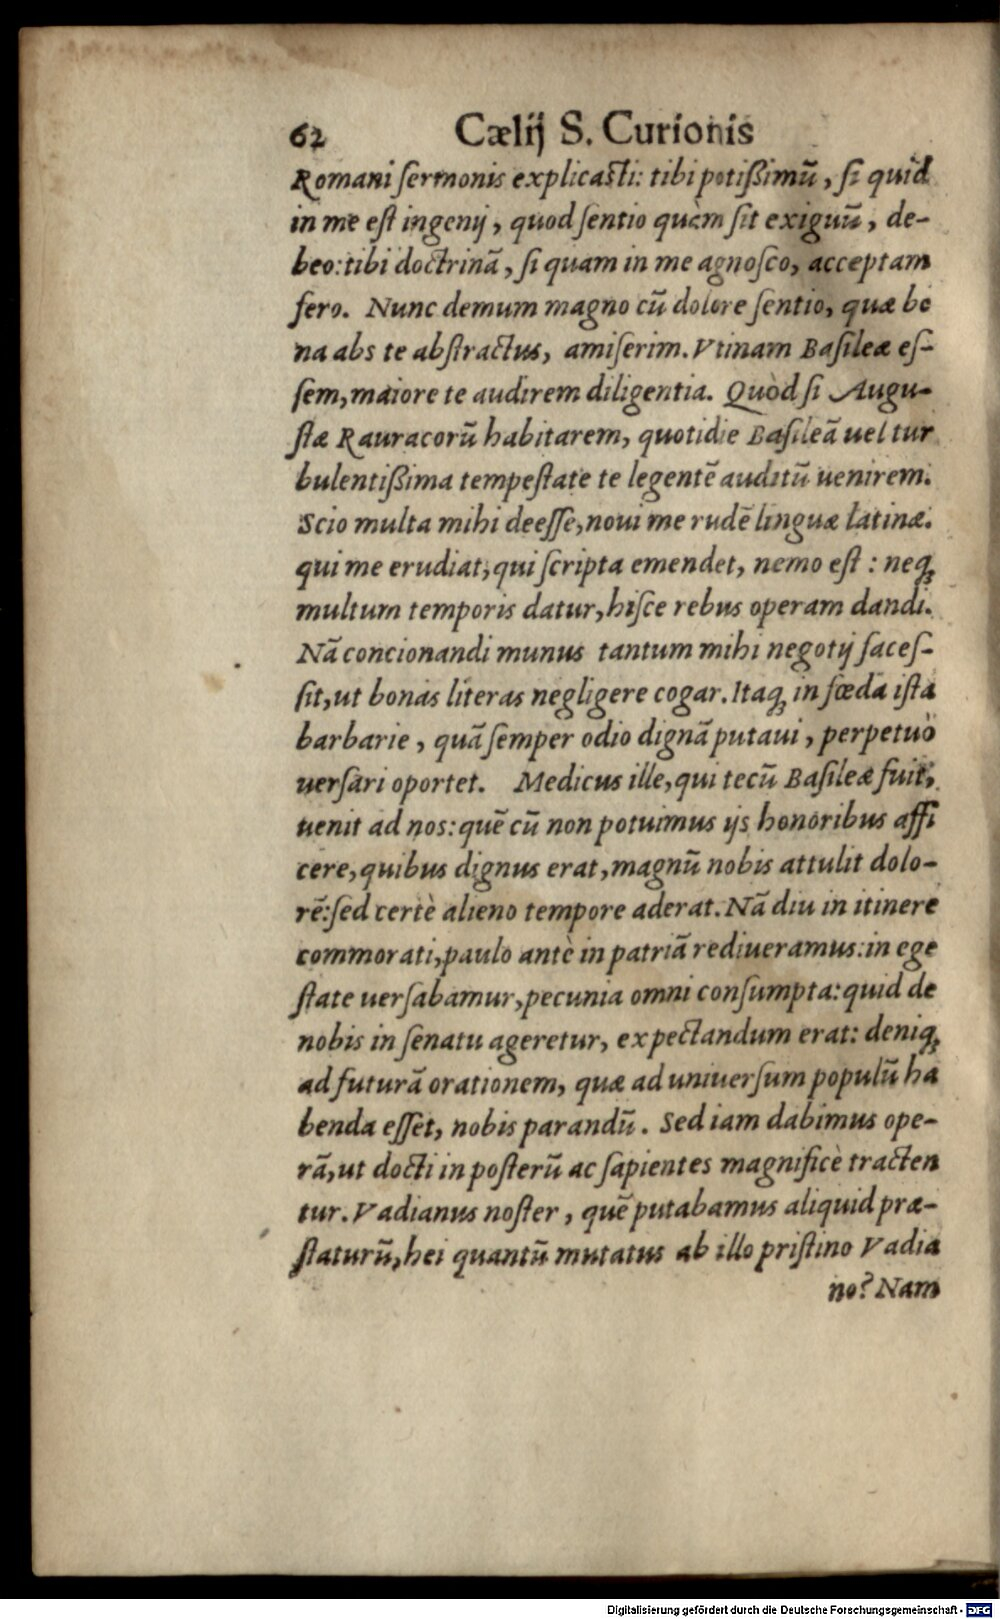 62 Cælij S. Curionis
Romani ſermonis explicaſti: tibi potißimũ, ſi quid
in me eſt ingenij, quod ſentio quàm ſit exiguũ, de-
beo: tibi doctrinã, ſi quam in me agnoſco, acceptam
fero. Nunc demum magno cũ dolore ſentio, quæ bo
na abs te abſtractus, amiſerim. Vtinam Baſileæ eſ-
ſem, maiore te audirem diligentia. Quòd ſi Augu-
ſtæ Rauracorũ habitarem, quotidie Baſileã uel tur
bulentißima tempeſtate te legentẽ auditũ uenirem.
Scio multa mihi deeſſe, noui me rudẽ linguæ latinæ.
qui me erudiat, qui ſcripta emendet, nemo eſt: neq;
multum temporis datur, hiſce rebus operam dandi.
Nã concionandi munus tantum mihi negotij faceſ-
ſit, ut bonas literas negligere cogar. Itaq; in fœda iſta
barbarie, quã ſemper odio dignã putaui, perpetuò
uerſari oportet. Medicus ille, qui tecũ Baſileæ fuit,
uenit ad nos: quẽ cũ non potuimus ijs honoribus affi
cere, quibus dignus erat, magnũ nobis attulit dolo-
rẽ: ſed certè alieno tempore aderat. Nã diu in itinere
commorati, paulo antè in patriã rediueramus: in ege
ſtate uerſabamur, pecunia omni conſumpta: quid de
nobis in ſenatu ageretur, expectandum erat: deniq;
ad futurã orationem, quæ ad uniuerſum populũ ha
benda eſſet, nobis parandũ. Sed iam dabimus ope-
rã, ut docti in poſterũ ac ſapientes magnificè tracten
tur. Vadianus noſter, quẽ putabamus aliquid præ-
ſtaturũ, hei quantũ mutatus ab illo priſtino Vadia
no? Nam
Digitalisierung gefördert durch die Deutsche Forschungsgemeinschaft - DFG